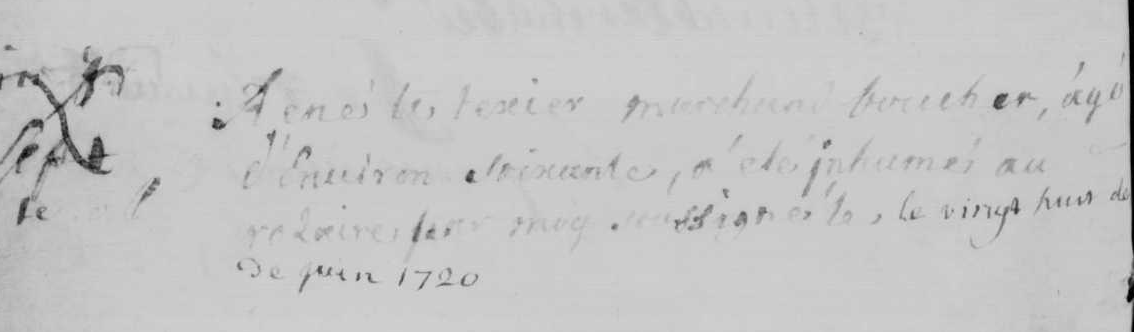 René le texier marchand boucher, âgé
d'Environ soixante, a été jnhumé au
par moy soussigné le, le vingt huit de
De juin 1720
sept
te